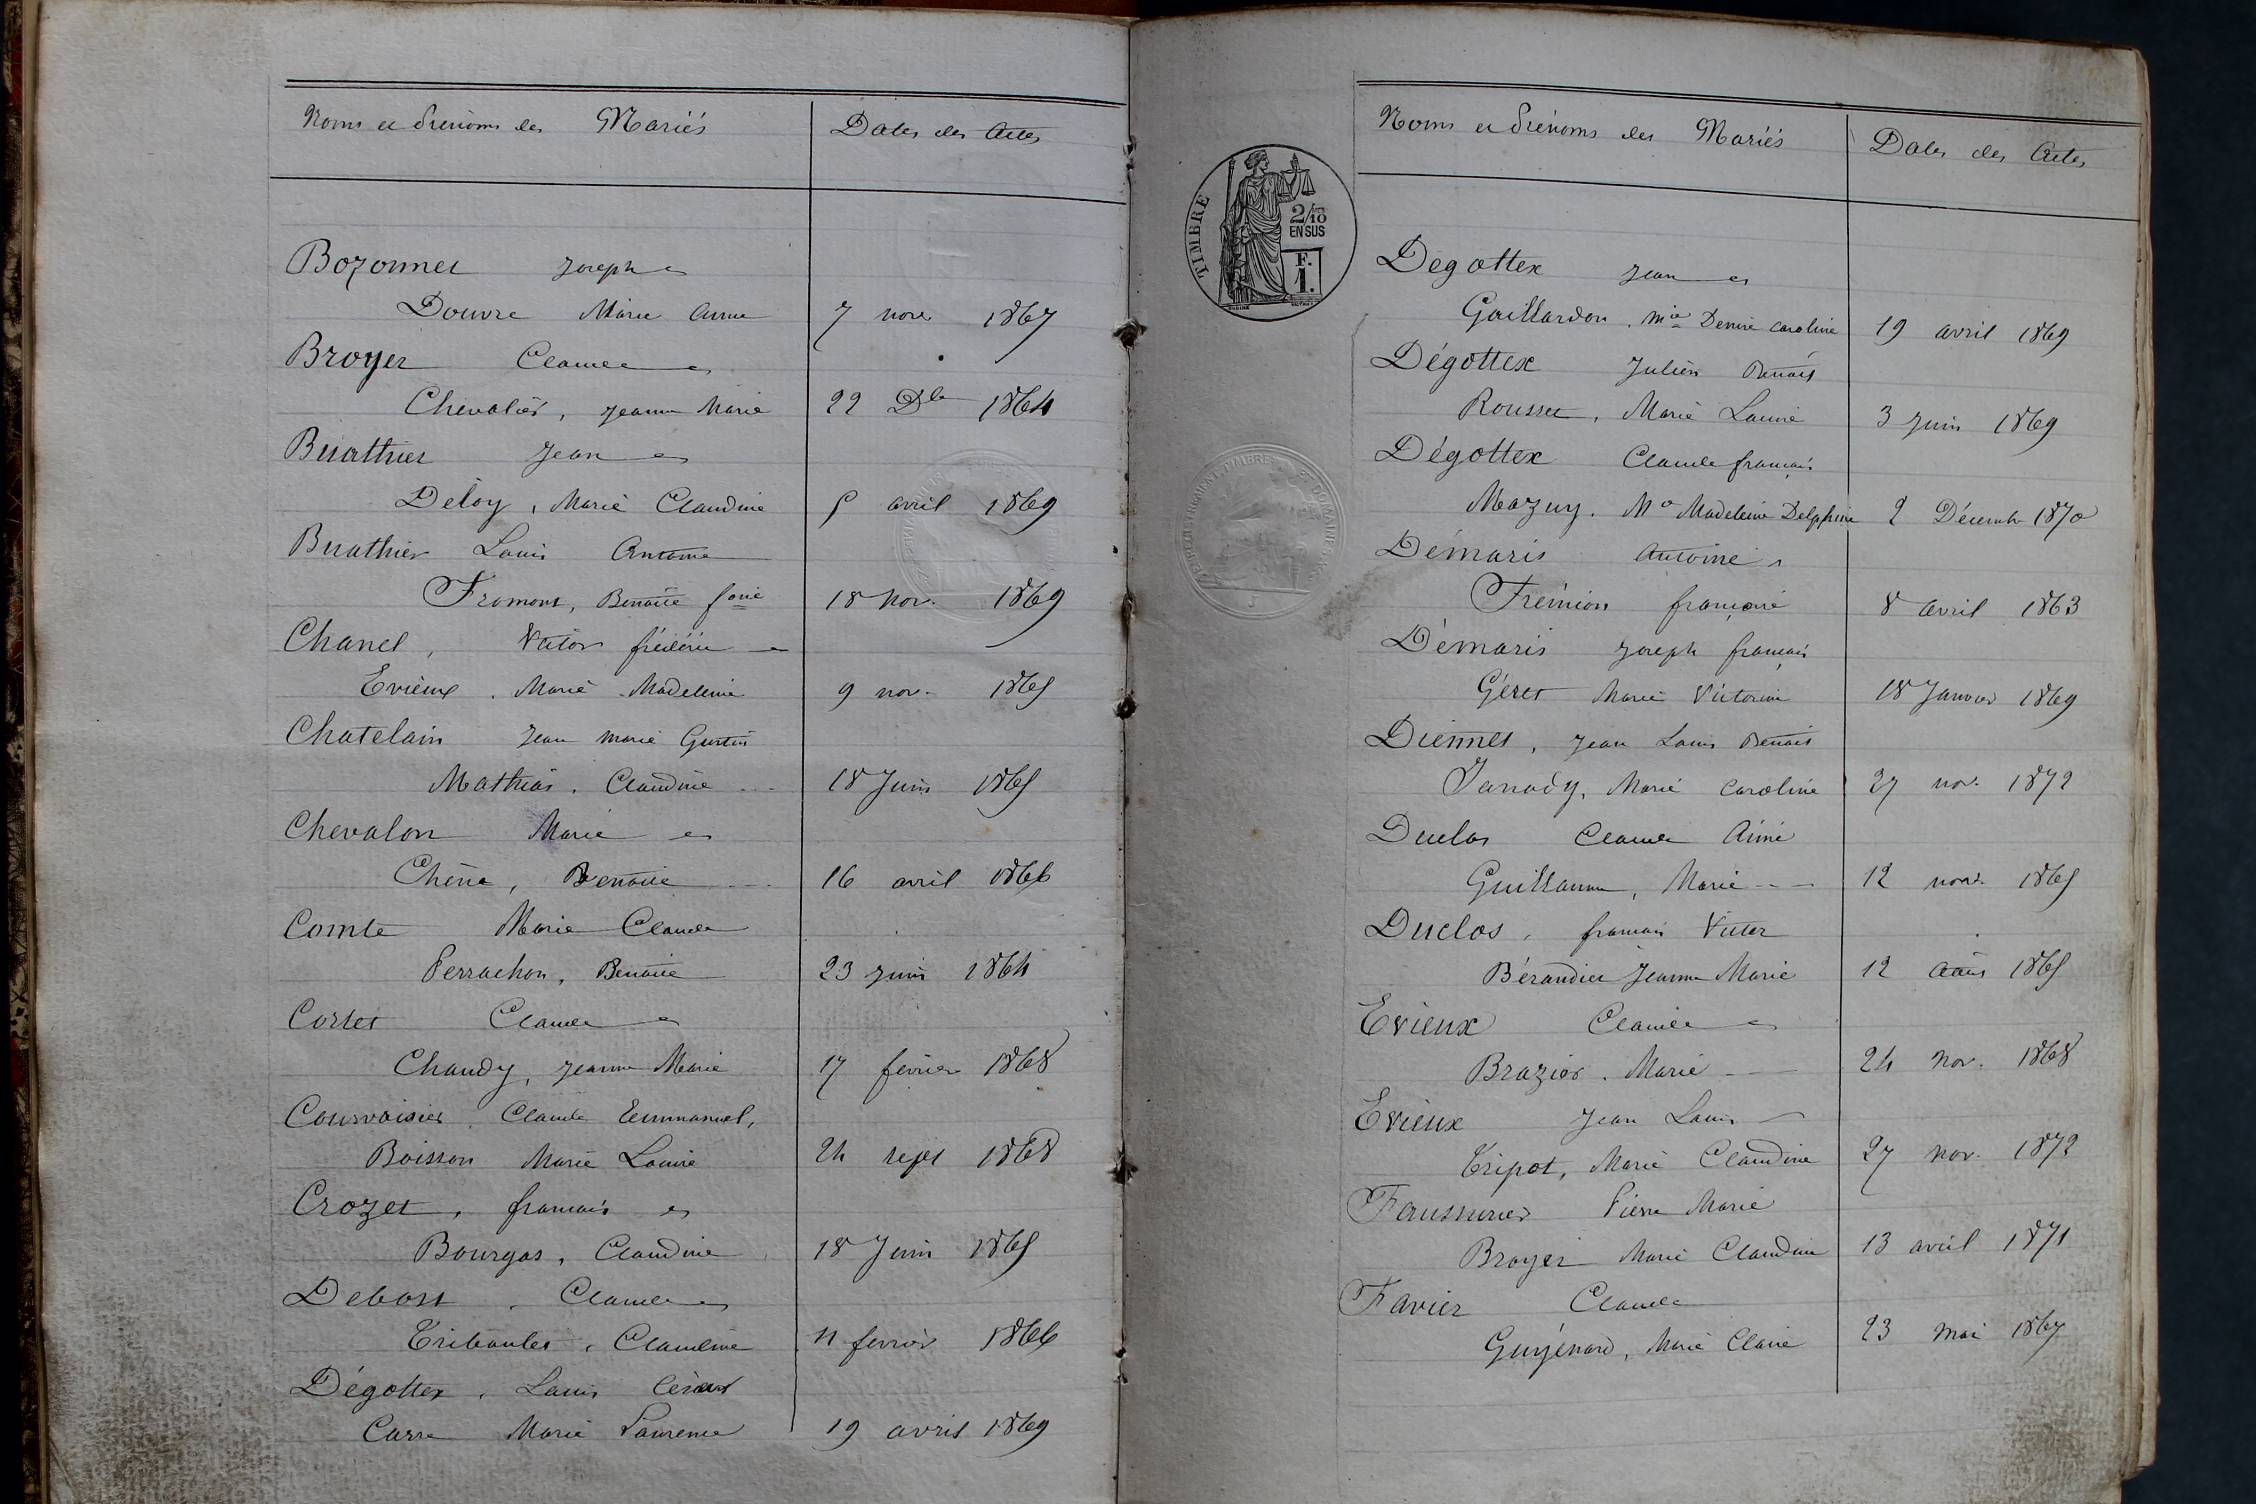 Noms et Prénoms des Mariés
Dates des Actes
Bozonnet Joseph et
Douvre Marie Anne 7 nove 1867
Broyer Claude et
Chevalier, Jeanne Marie 22 Dbe 1864
Buathier Jean et
Déloy, Marie Claudine 5 avril 1869
Buathier Louis Antoine
Fromont, Benoite fse 18 Nov. 1869
Chanel, Victor frédéric et
Evieux, Marie Madeleine 9 nov. 1865
Chatelain Jean Marie
Mathias, Claudine 18 Juin 1865
Chevalon Marie et
Chêne, Benoite 16 avril 1866
Comte Marie Claude
Perrachon, Benoite 23 juin 1864
Cortet Claude et
Chaudy, Jeanne Marie 17 février 1868
Courvoisier, Claude Emmanuel,
Boisson Marie Louise 24 sept 1868
Crozet, françois et
Bourgas, Claudine 18 Juin 1865
Debost, Claude et
Triboulet, Claudine 11 fevrier 1866
Dégottex, Louis César
Carre Marie Laurence 19 avril 1869
TIMBRE
2/10
EN SUS
F.
1.
Noms et Prénoms des Mariés
Dates des Actes
Degottex Jean et
Gaillardon, Mie Denise Caroline 19 avril 1869
Dégottex Julien Benoit
Rousset, Marie Louise 3 Juin 1869
Dégottex Claude françois
Mazuy. Me Madeleine Delphine 2 Décembre 1870
Démaris Antoine et
Frémion françoise 8 avril 1863
Démaris Joseph françois
Géret Marie Victorine 18 Janvier 1869
Diennet, Jean Louis Benoit
Janody, Marie Caroline 27 nov. 1872
Duclos Claude Aimé
Guillaume, Marie 12 nov. 1865
Duclos, françois Victor
Bérardier Jeanne Marie 12 Août 1865
Evieux Claude et
Brazier. Marie 24 Nov. 1868
Evieux Jean Louis
Tripot, Marie Claudine 27 nov. 1872
Faussurier Pierre Marie
Broyer Marie Claudine 13 avril 1871
Favier Claude
Guyénard, Marie Claire 23 Mai 1867